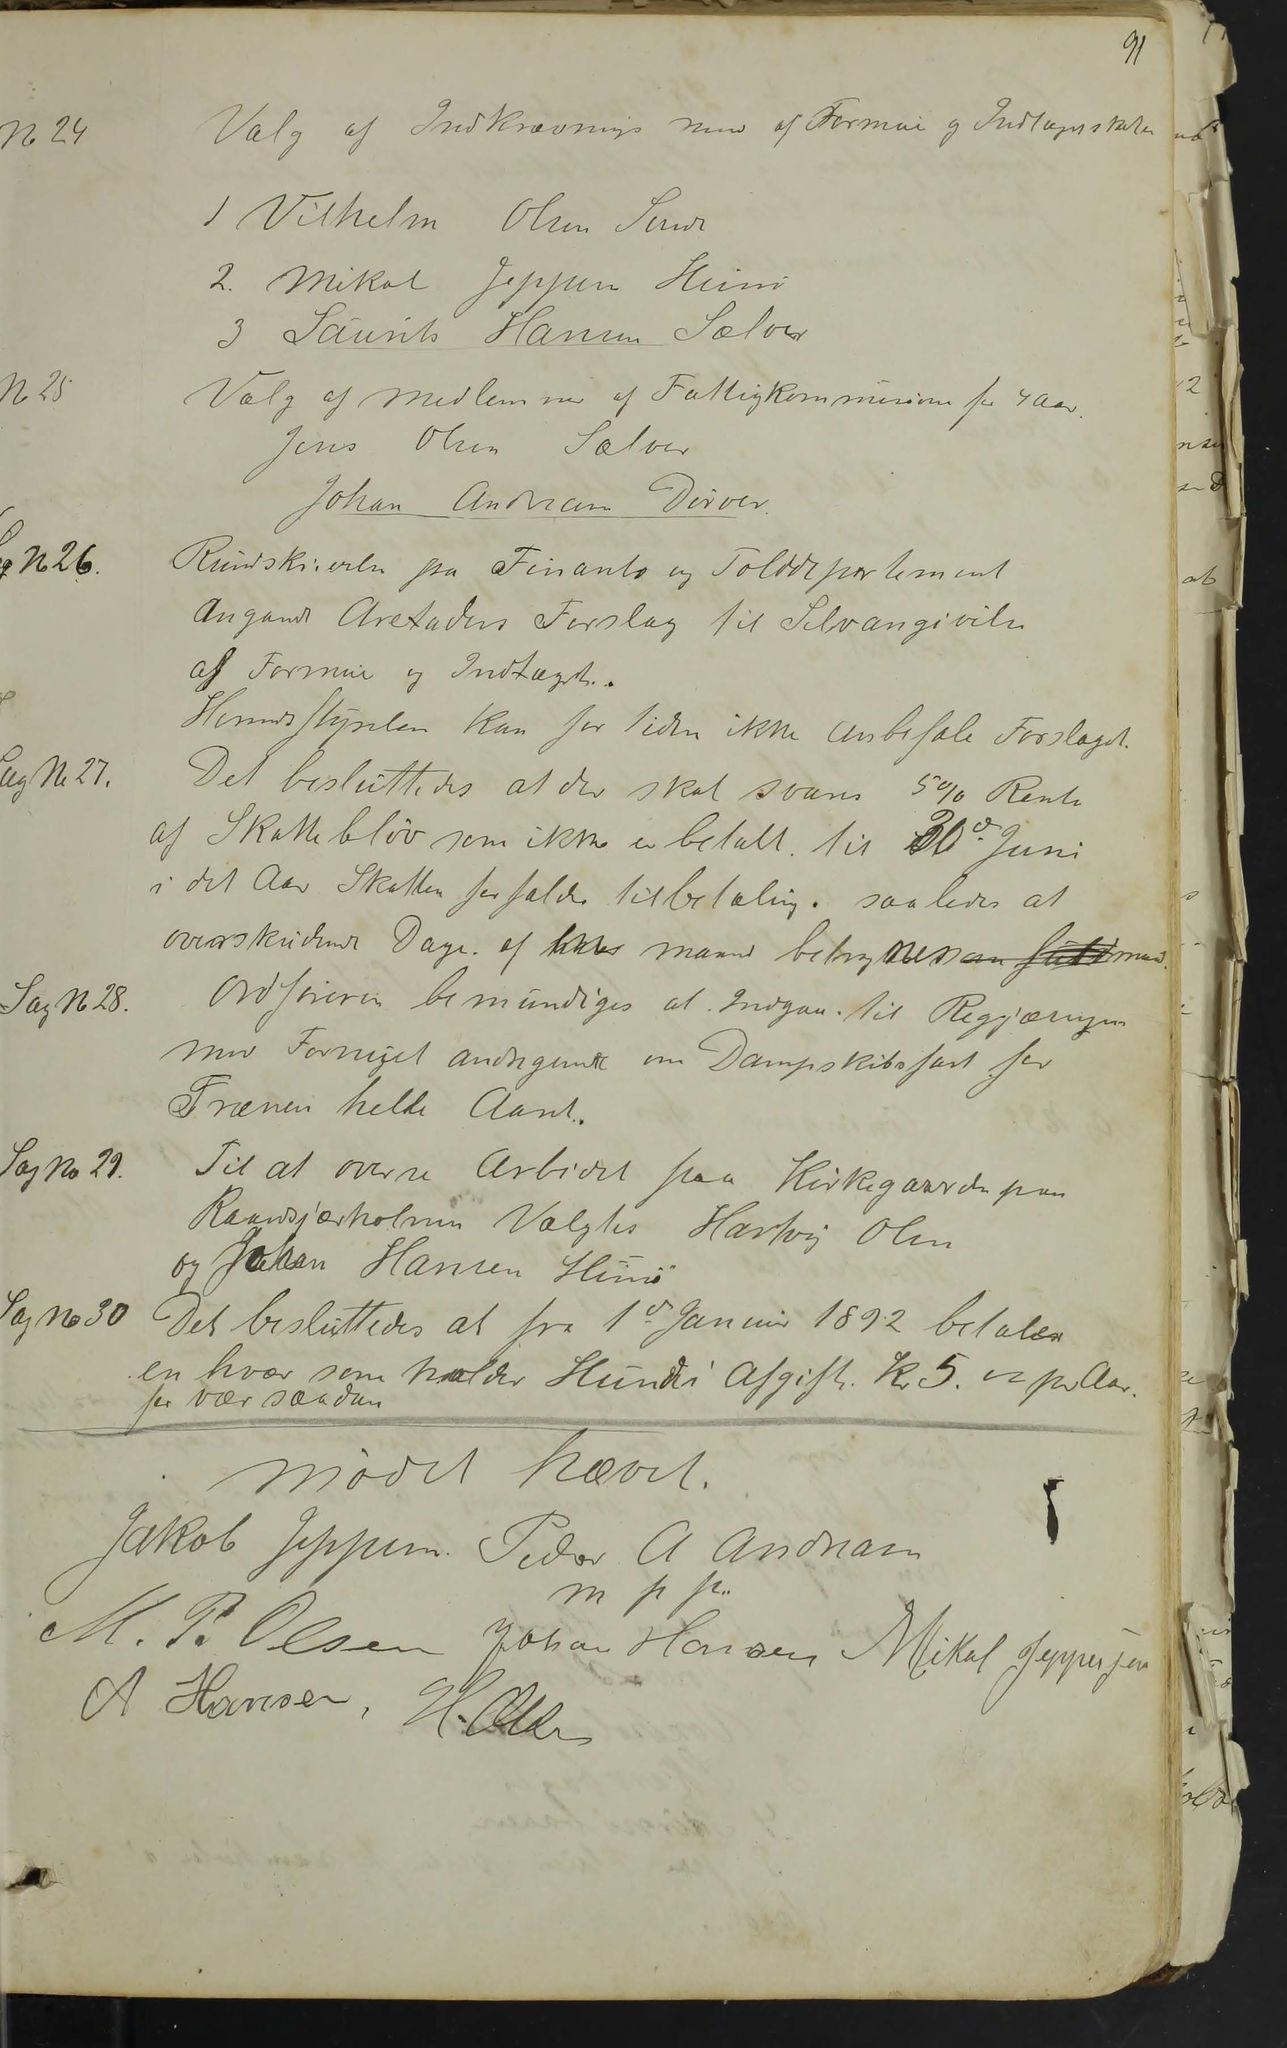 91
No 24 Valg af Indkrævnings mend af Formue og Indtægtsskaten
1 Vilhelm Olsen Sund
2. Mikal Jeppsen Husø
3 Laurits Hansen Sælver
No 25 Valg af Medlemmer af Fattigkommisionen for 4 Aar.
Jens Olsen Sælver
Johan Andreasen Dørver.
Sag No 26. Rundskrivelse fra Finants og Tolddepartement
Angaande Aretaders Forslag til Selvangivelse
af Formue og Indtægt.
Herredsstyrelsen kan for tiden ikke anbefale Forslaget.
Sag No 27. Det besluttedes at der skal svares 5% Rente
af Skatteblöv som ikke er betalt til 30d Juni
i det Aar Skatten forfalder til betaling. saaledes at
overskudende Dage. af maaned
Sag No 28. Ordføreren bemundiges at Indgaa. til Regjæringen
med Fornyet andragende om Dampskibsfart for
Trænen helle Aaret.
Sag No 29. Til at overse Arbidet paa Kirkegaarden paa
Valgtes Hartvig Olsen
og Johan Hansen Husø
Sag No 30 Det besluttedes at fra 1d Januar 1892 betaler
en hvær som holder Hunde i Afgift. Kr 5. pr Aar.
for vær saadan
Mødet hævet.
Jakob Jeppsen. Peder A Andreasen
m p p.
M. P. Olsen Johan Hansen Mikal Jeppesen
A Hansen, H. Olsen